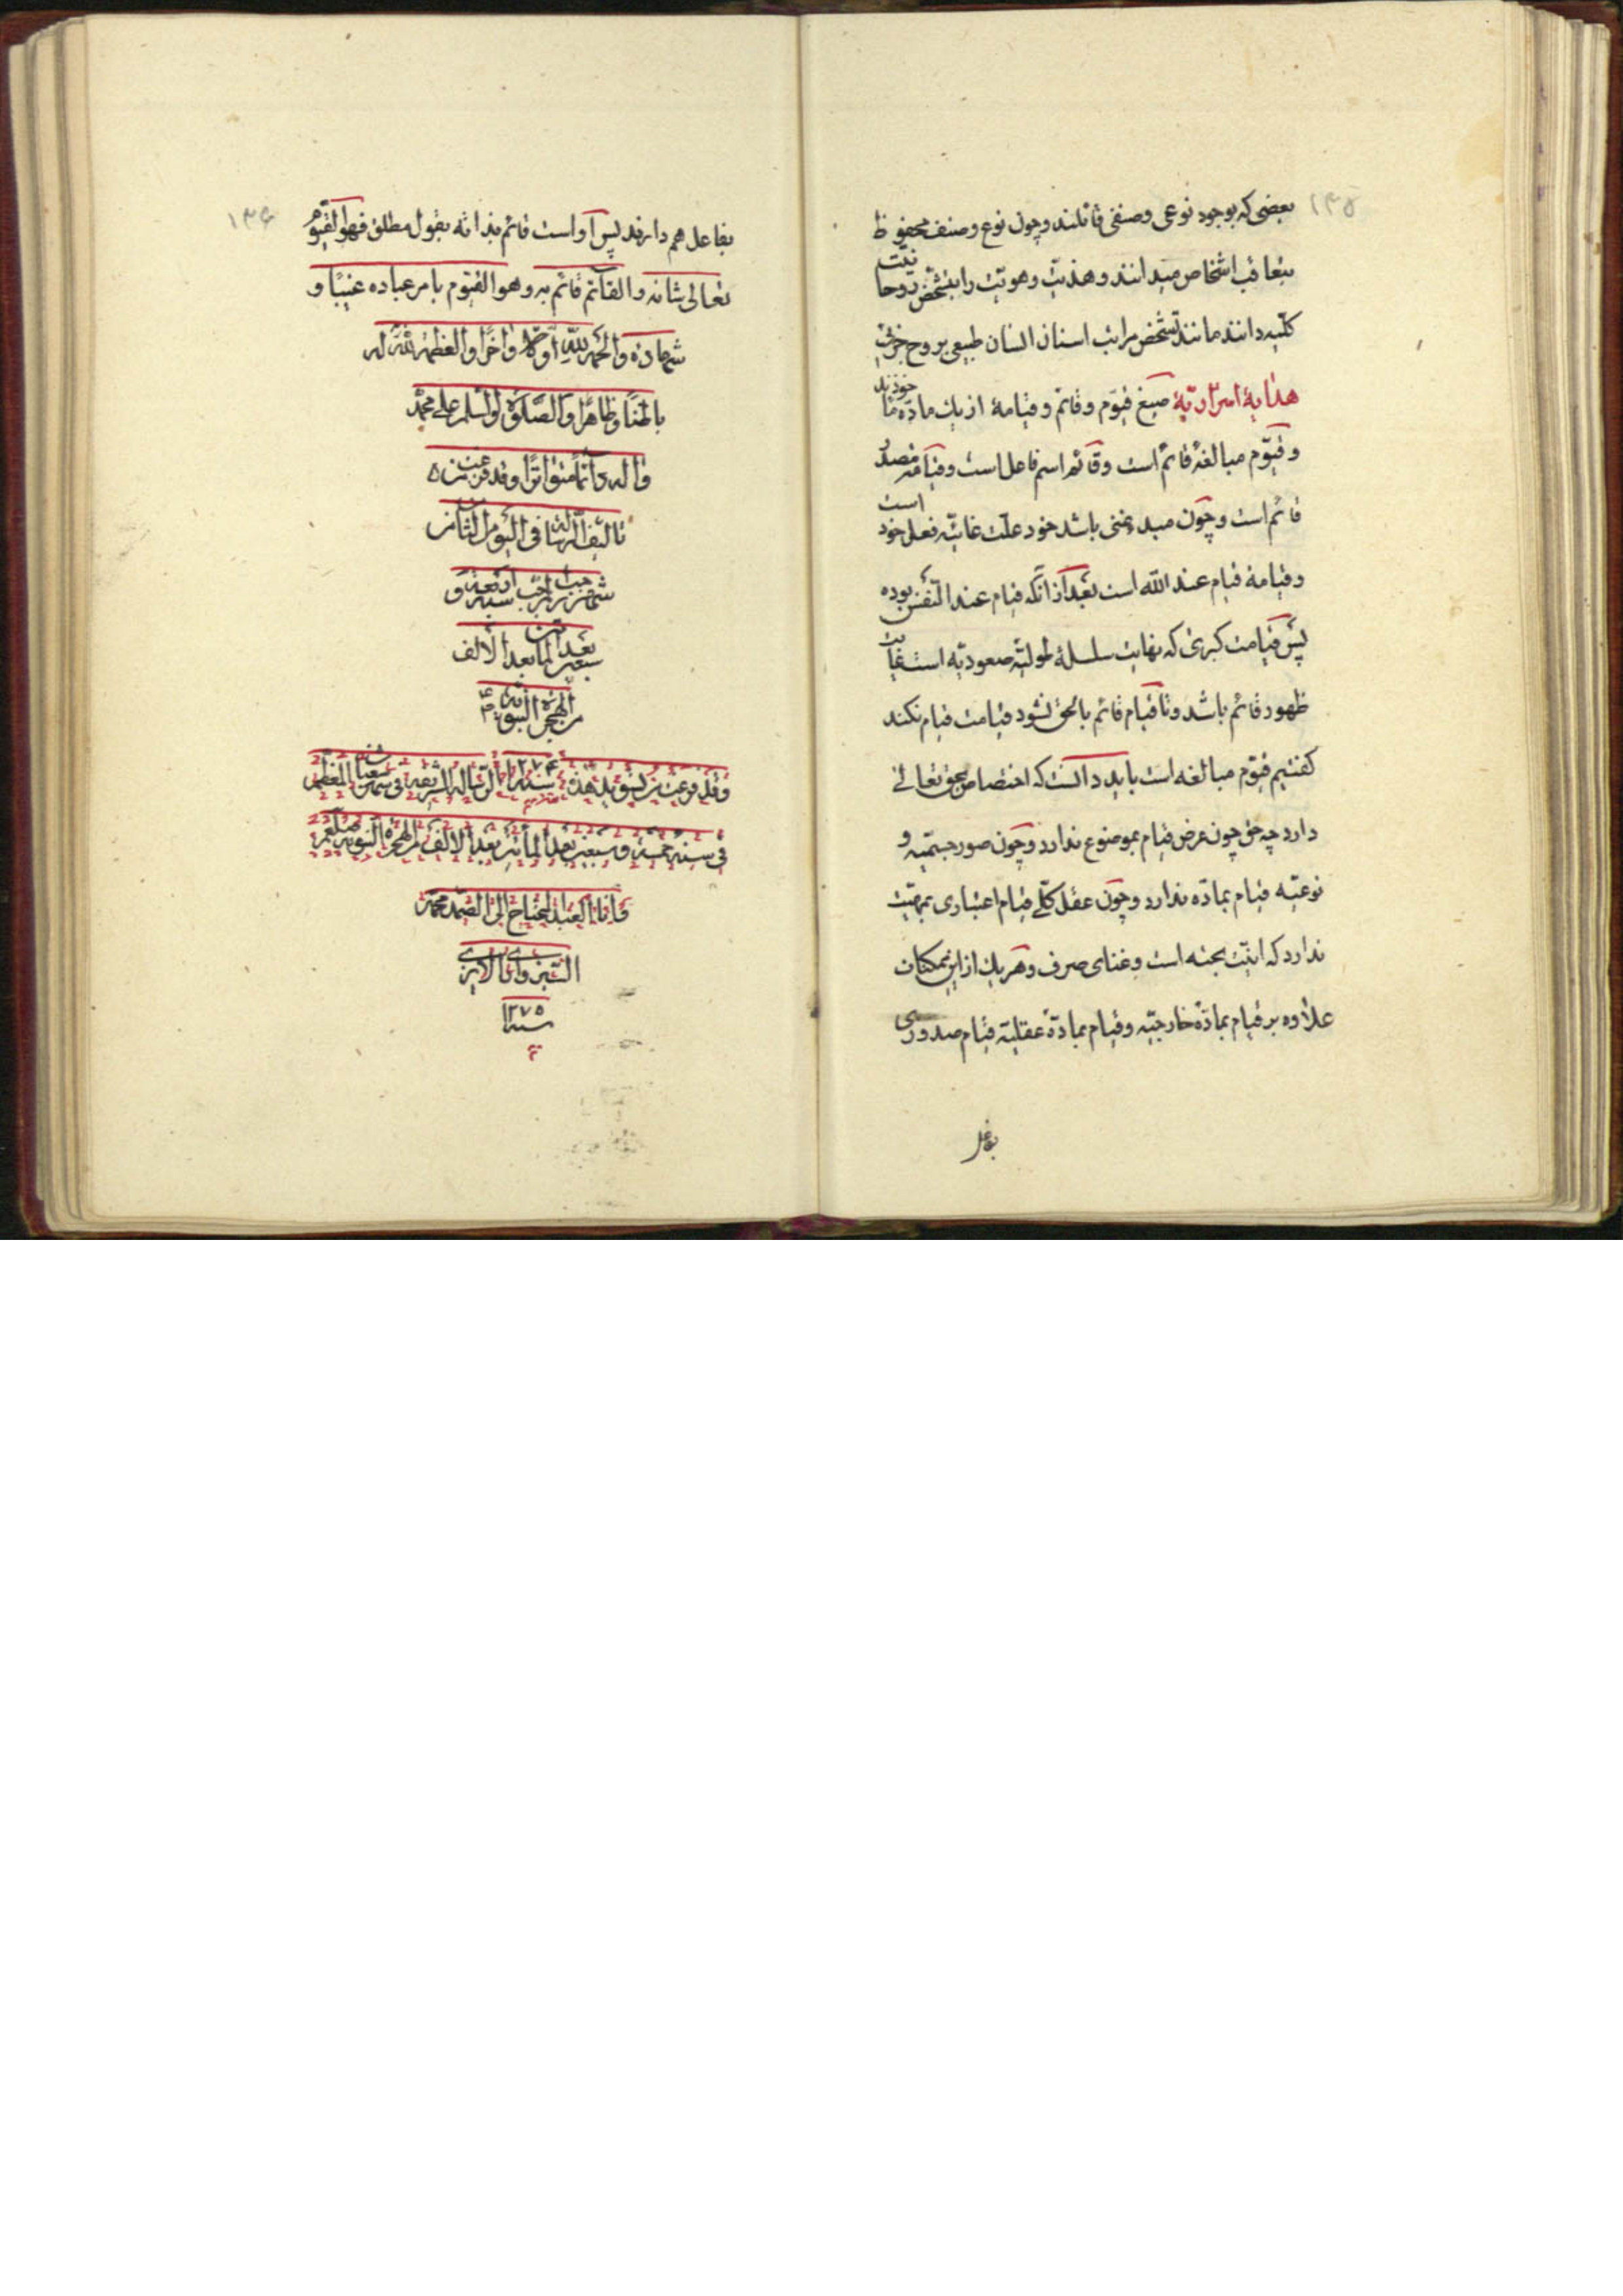 ۱۳۵
بعضی که بوجود نوعی و صنفی قائلند و چون نوع و صنف محفوظ
بتعاقب اشخاص میدانند و هذیت و هویت را بتشخص روحانیت
کلیه دانند مانند تشخص مراتب اسنان انسان طبیعی بروح جزئی
هدایة اسراریة صیغ قیوم و قائم و قیامة از یك ماده مأخوذند
و قیوم مبالغهٔ قائم است و قائم اسم فاعل است و قیامة مصدر است
قائم است و چون مبدء غنی باشد خود علت غائیه فعل خود
و قیامة قیام عند الله است بعد از آنکه قیام عند النفس بوده
پس قیامت کبری که نهایت سلسلهٔ طولیه صعودیه است غایت
ظهور قائم باشد و تا قیام قائم بالحق نشود قیامت قیام نکند
گفتیم قیوم مبالغه است باید دانست که اختصاص بحق تعالی
دارد چه حق چون عرض قیام بموضوع ندارد و چون صور جسمیه و
نوعیه قیام بماده ندارد و چون عقل کلی قیام اعتباری بمهیت
ندارد که انیت بحته است و غنای صرف و هر یك از این ممکنات
علاوه بر قیام بمادهٔ خارجیه و قیام بمادهٔ عقلیه قیام صدوری
بفاعل
۱۳۶
بفاعل هم دارند پس او است قائم بذاته بقول مطلق فهو القیوم
تعالی شانه و القائم قائم به و هو القیوم بامر عباده غیبا و
شهادة و الحمد لله اولا و آخرا و العظمة لله له
باطنا و ظاهرا و الصلوة و السلم علی محمد
و اله دائما متواترا و قد فرغت من
تالیف الرسالة فی الیوم الثامن
شهر رجب المرجب سنة اربعة و
سبعین بعد المأتین بعد الالف
من الهجرة النبویة
سنه ۱۲۷۴
و قد فرغت من تسوید هذه الرسالة الشریفة فی شهر شعبان المعظم
فی سنة خمسة و سبعین بعد المأتین بعد الالف من الهجرة النبویة صلعم
و انا العبد المحتاج الی الصمد محمد
السبزواری
سنه ۱۲۷۵